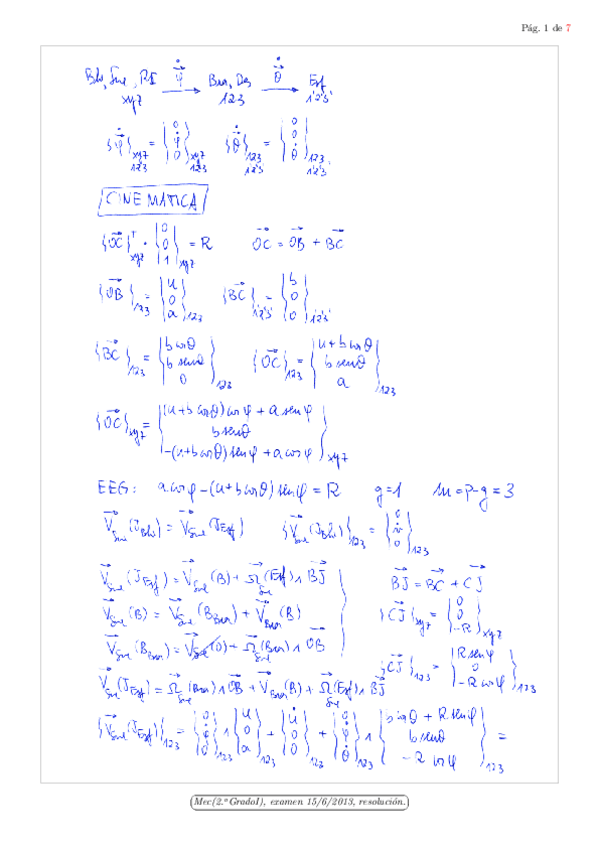 Pág. 1 de 7
Blo, Sue, RI →(φ̇) Bar, Des →(θ̇) Esf
xyz 123 1'2'3'
{φ̇}xyz,123 = {0 φ̇ 0}xyz,123 {θ̇}123,1'2'3' = {0 0 θ̇}123,1'2'3'
CINEMATICA
{OC}ᵀxyz · {0 0 1}xyz = R OC = OB + BC
{OB}123 = {u 0 a}123 {BC}1'2'3' = {b 0 0}1'2'3'
{BC}123 = {b cosθ b senθ 0}123 {OC}123 = {u+b cosθ b senθ a}123
{OC}xyz = {(u+b cosθ) cosφ + a senφ b senθ -(u+b cosθ) senφ + a cosφ}xyz
EEG: a cosφ - (u+b cosθ) senφ = R g=1 m=p-g=3
V Sue (J Blo) = V Sue (J Esf) {V Sue (J Blo)}123 = {0 v 0}123
V Sue (J Esf) = V Sue (B) + Ω Sue (Esf) ∧ BJ BJ = BC + CJ
V Sue (B) = V Sue (B Bar) + V Bar (B) {CJ}xyz = {0 0 -R}xyz
V Sue (B Bar) = V Sue (O) + Ω Sue (Bar) ∧ OB {CJ}123 = {R senφ 0 -R cosφ}123
V Sue (J Esf) = Ω Sue (Bar) ∧ OB + V Bar (B) + Ω Sue (Esf) ∧ BJ
{V Sue (J Esf)}123 = {0 φ̇ 0}123 ∧ {u 0 a}123 + {u̇ 0 0}123 + {0 φ̇ θ̇}123 ∧ {b cosθ + R senφ b senθ -R cosφ}123 =
Mec(2.º GradoI), examen 15/6/2013, resolución.